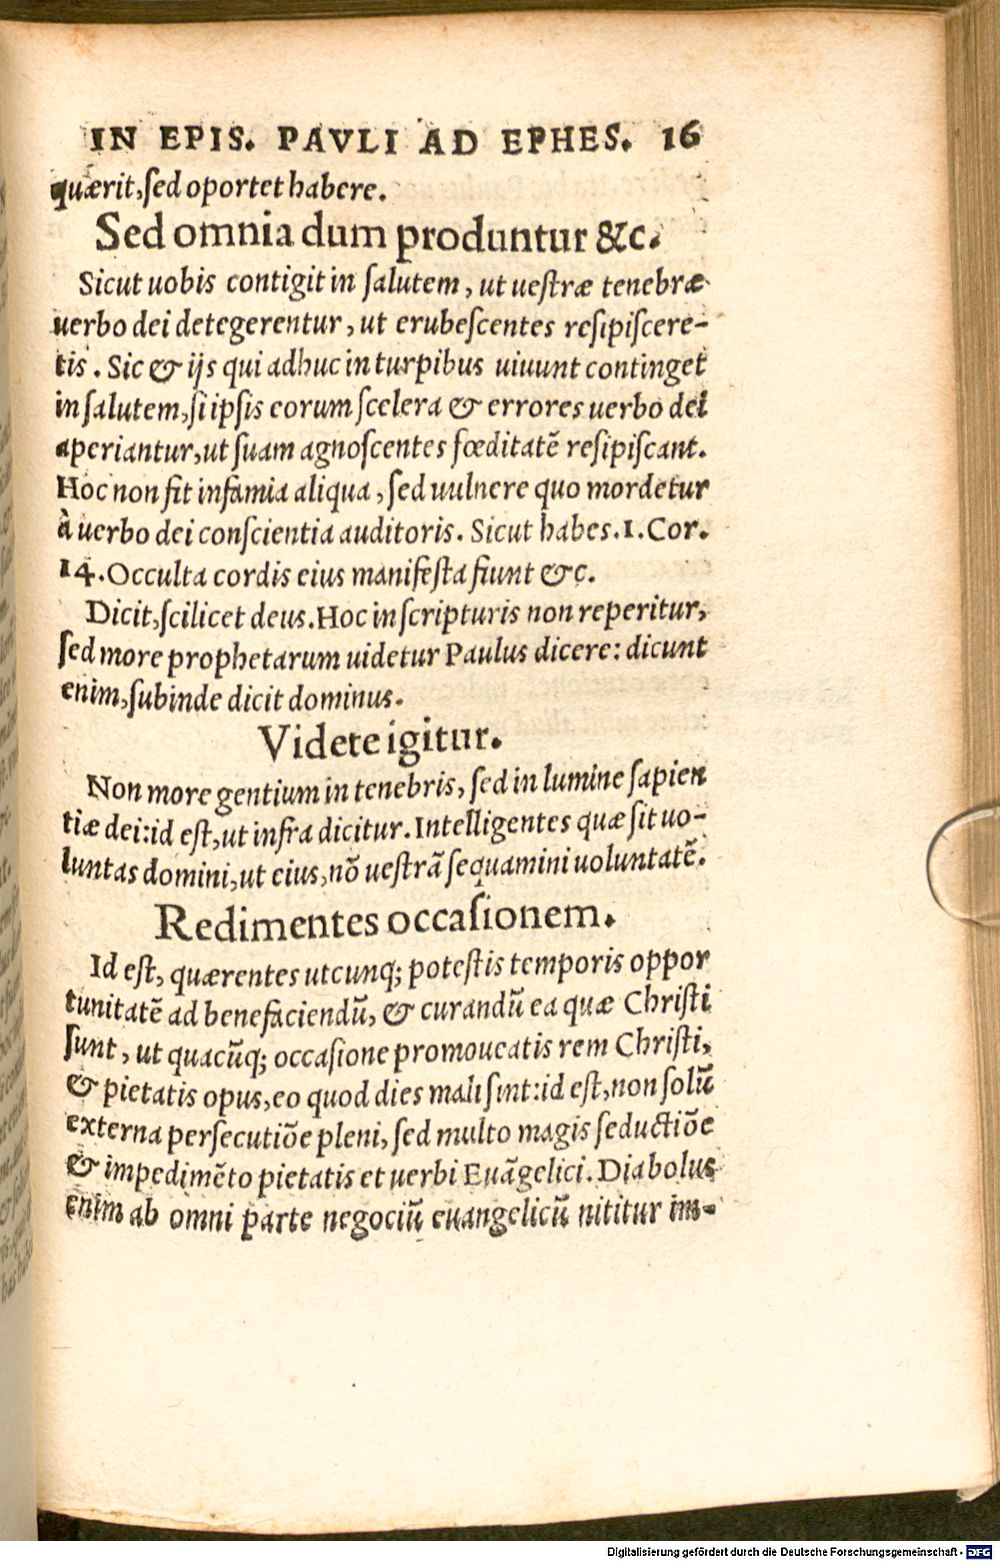 IN EPIS. PAVLI AD EPHES. 16
quærit, sed oportet habere.
Sed omnia dum produntur &c.
Sicut uobis contigit in ſalutem, ut ueſtræ tenebræ
uerbo dei detegerentur, ut erubeſcentes reſipiſcere-
tis. Sic & ijs qui adhuc in turpibus uiuunt continget
in ſalutem, ſi ipſis eorum ſcelera & errores uerbo dei
aperiantur, ut ſuam agnoſcentes fœditatē reſipiſcant.
Hoc non fit infamia aliqua, ſed uulnere quo mordetur
à uerbo dei conſcientia auditoris. Sicut habes. 1. Cor.
14. Occulta cordis eius manifeſta fiunt &c.
Dicit, ſcilicet deus. Hoc in ſcripturis non reperitur,
ſed more prophetarum uidetur Paulus dicere: dicunt
enim, ſubinde dicit dominus.
Videte igitur.
Non more gentium in tenebris, ſed in lumine ſapien
tiæ dei: id eſt, ut infra dicitur. Intelligentes quæ ſit uo-
luntas domini, ut eius, nō ueſtrā ſequamini uoluntatē.
Redimentes occaſionem.
Id eſt, quærentes utcunq; poteſtis temporis oppor
tunitatē ad benefaciendū, & curandū ea quæ Chriſti
ſunt, ut quacūq; occaſione promoueatis rem Chriſti,
& pietatis opus, eo quod dies mali ſint: id eſt, non ſolū
externa perſecutiōe pleni, ſed multo magis ſeductiōe
& impedimēto pietatis et uerbi Euāgelici. Diabolus
enim ab omni parte negociū euangelicū nititur im-
Digitalisierung gefördert durch die Deutsche Forschungsgemeinschaft - DFG